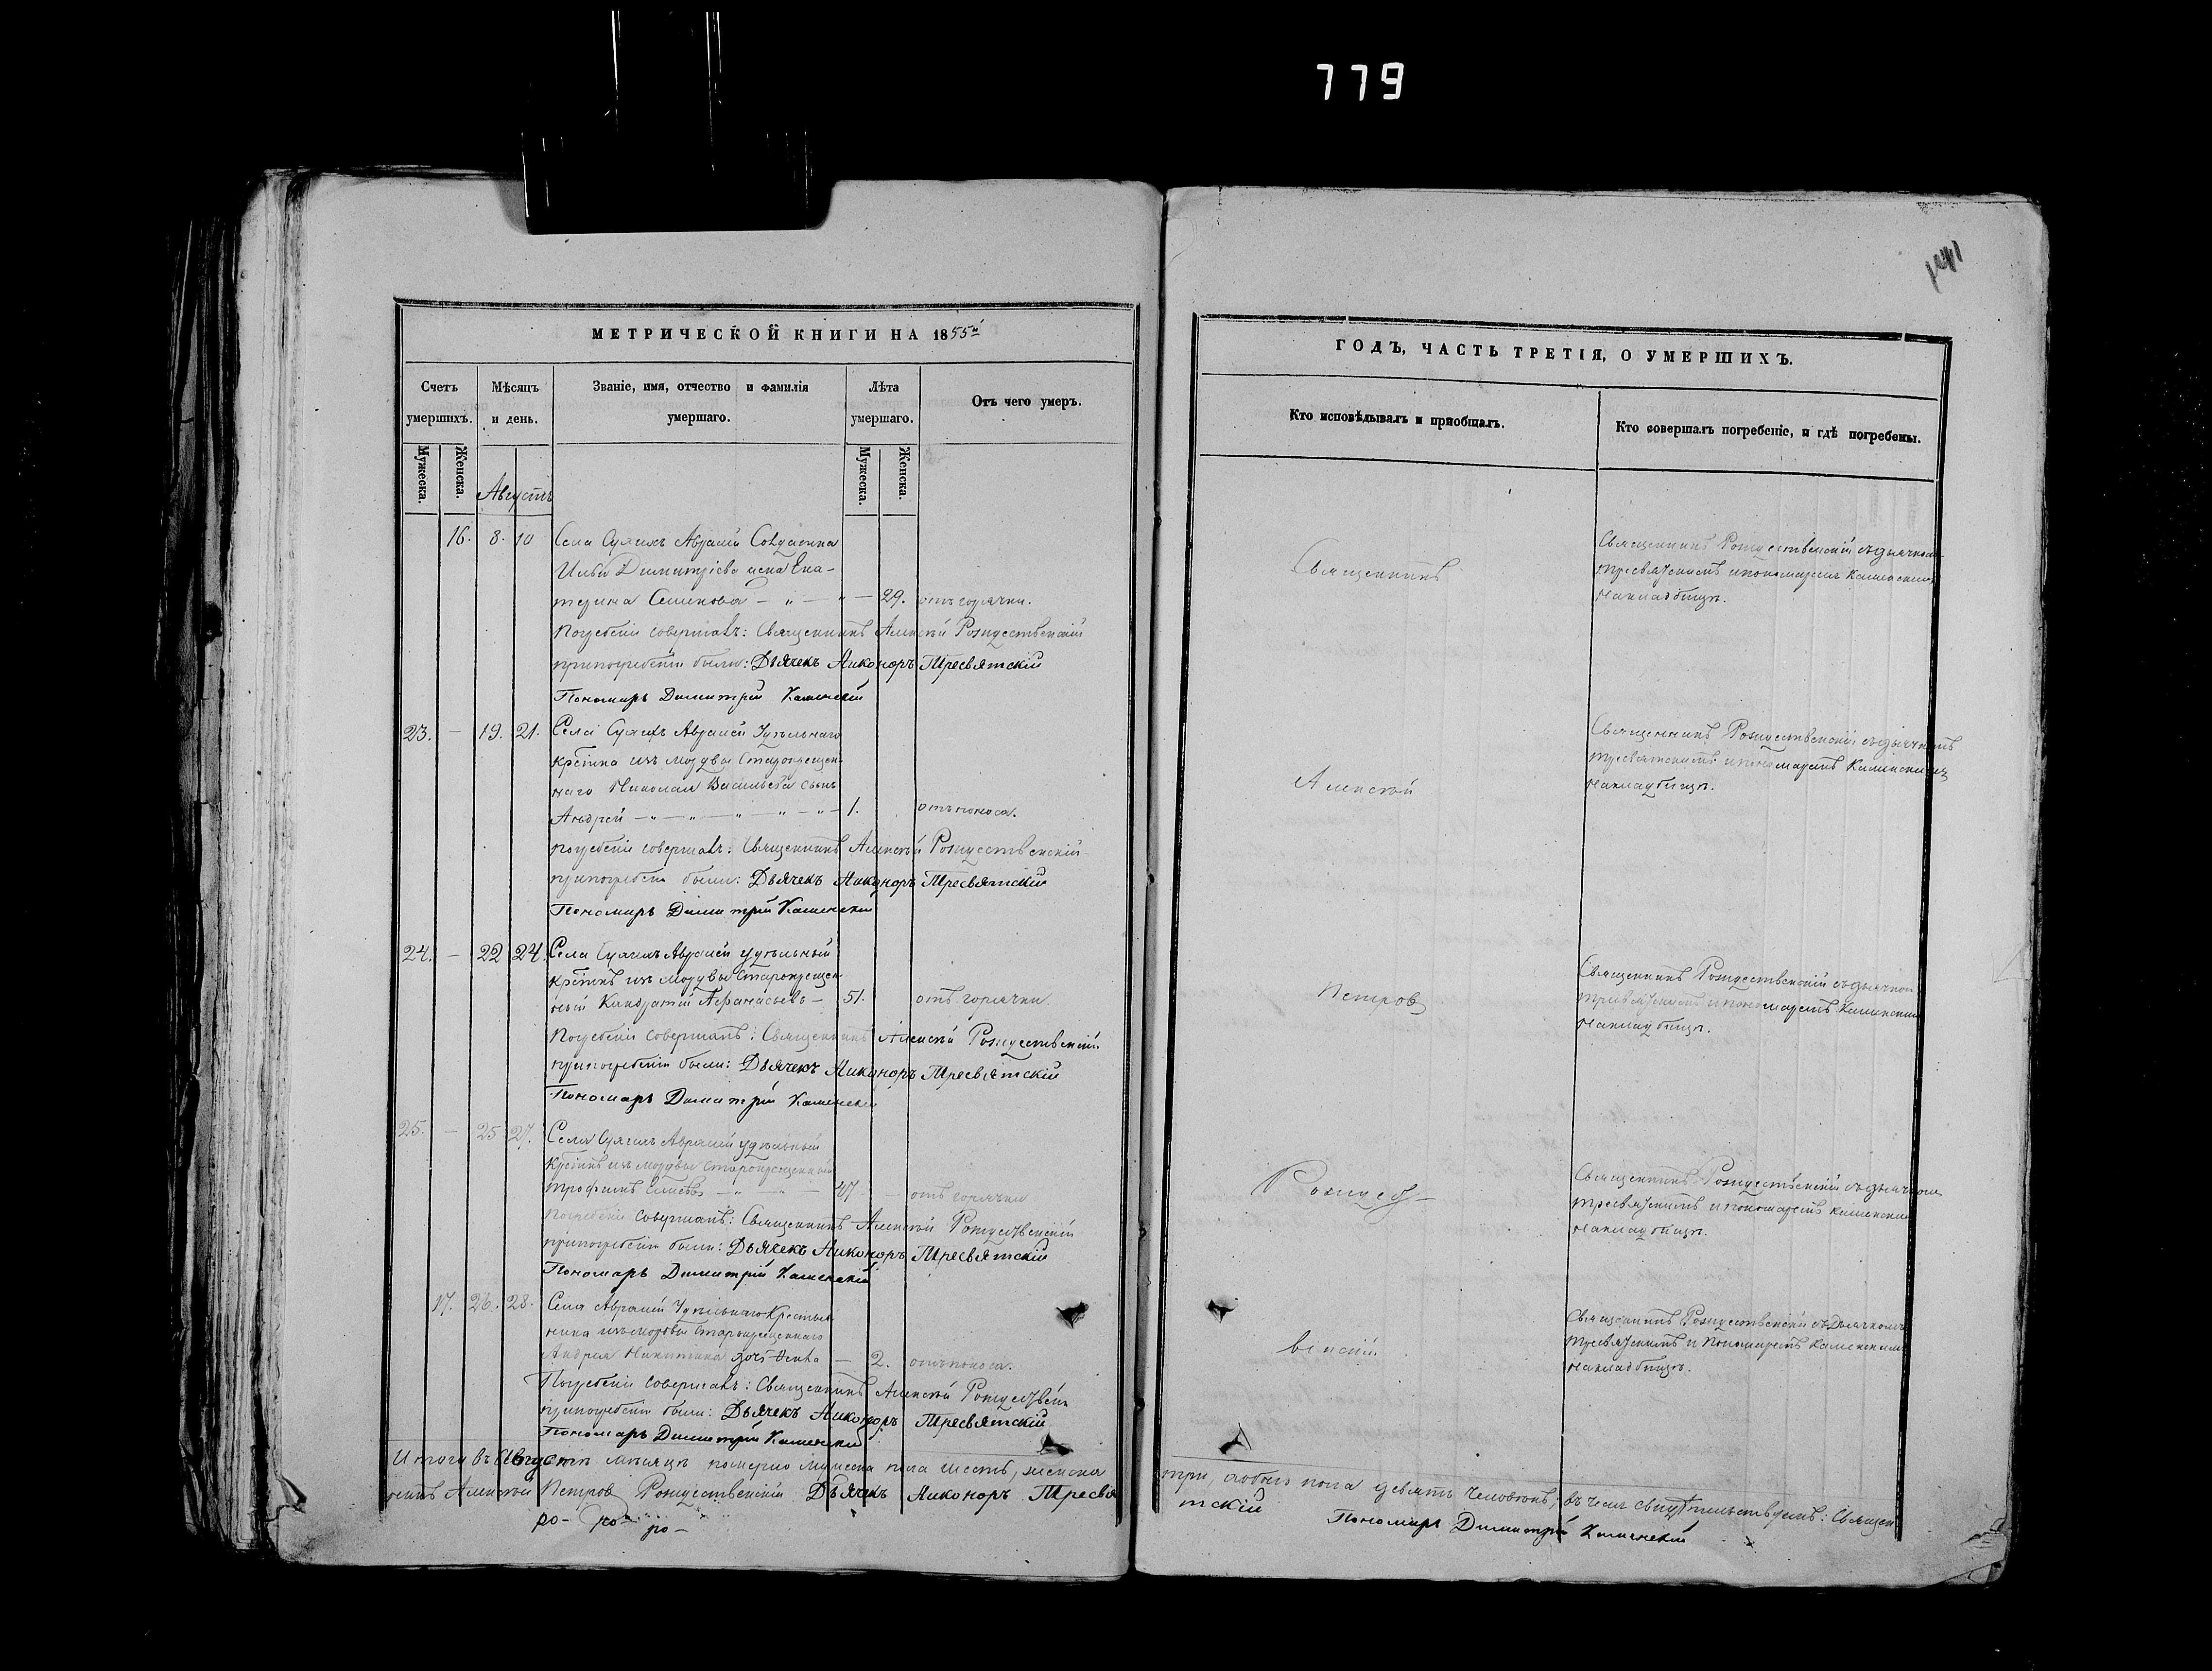 779
МЕТРИЧЕСКОЙ КНИГИ НА 1855й
Счетъ умершихъ.
Мѣсяцъ и день.
Званіе, имя, отчество и фамилія умершаго.
Лѣта умершаго.
Отъ чего умеръ.
Мужеска.
Женска.
Августъ
Мужеска.
Женска.
16. 8. 10 Села
Ильи Димитріева жена Ека-
терина Семенова — 29. отъ горячки.
Погребеніе совершалъ: Священникъ Алексѣй Рождественскій
при погребеніи были: Дьячекъ Никоноръ Тресвятскій
Пономарь Димитрій Каменскій
23. — 19. 21. Села Авралей Удѣльнаго
крестьянина изъ мордвы старокрещен-
наго Николая Васильева сынъ
Андрей — 1. отъ поноса.
Погребеніе совершалъ: Священникъ Алексѣй Рождественскій
при погребеніи были: Дьячекъ Никоноръ Тресвятскій
Пономарь Димитрій Каменскій
24. — 22 24. Села Авралей удѣльный
изъ мордвы старокрещен-
ный Кандратій Афанасьевъ — 51. отъ горячки
Погребеніе совершалъ: Священникъ Алексѣй Рождественскій
при погребеніи были: Дьячекъ Никоноръ Тресвятскій
Пономарь Димитрій Каменскій
25. — 25 27. Села Авралей удѣльный
изъ мордвы старокрещенный
Трофимъ — 47 — отъ горячки
Погребеніе совершалъ: Священникъ Алексѣй Рождественскій
при погребеніи были: Дьячекъ Никоноръ Тресвятскій
Пономарь Димитрій Каменскій
17. 26. 28. Села Авралей Удѣльнаго Крестья-
нина изъ мордвы старокрещеннаго
Андрея Никитина дочь — 2. отъ поноса.
Погребеніе совершалъ: Священникъ Алексѣй
при погребеніи были: Дьячекъ Никоноръ Тресвятскій
Пономарь Димитрій Каменскій
Итого въ Августѣ мѣсяцѣ померло мужеска пола шесть, женска
никъ Алексѣй Петровъ Рождественскій Дьячекъ Никоноръ Тресвя
ро- ро- ро-
ГОДЪ, ЧАСТЬ ТРЕТІЯ, О УМЕРШИХЪ.
Кто исповѣдывалъ и приобщалъ.
Кто совершалъ погребеніе, и гдѣ погребены.
Священникъ
Алексѣй
Петровъ
Рождест-
венскій
Священникъ Рождественскій съ дьячкомъ
Тресвятскимъ и пономаремъ Каменскимъ
на кладбищѣ.
Священникъ Рождественскій съ дьячкомъ
Тресвятскимъ и пономаремъ Каменскимъ
на кладбищѣ.
Священникъ Рождественскій съ дьячкомъ
Тресвятскимъ и пономаремъ Каменскимъ
на кладбищѣ.
Священникъ Рождественскій съ дьячкомъ
Тресвятскимъ и пономаремъ Каменскимъ
на кладбищѣ.
Священникъ Рождественскій съ дьячкомъ
Тресвятскимъ и пономаремъ Каменскимъ
на кладбищѣ.
три, обоего пола девять человѣкъ, въ чемъ свидѣтельствуемъ: Священ
тскій Пономарь Димитрій Каменскій